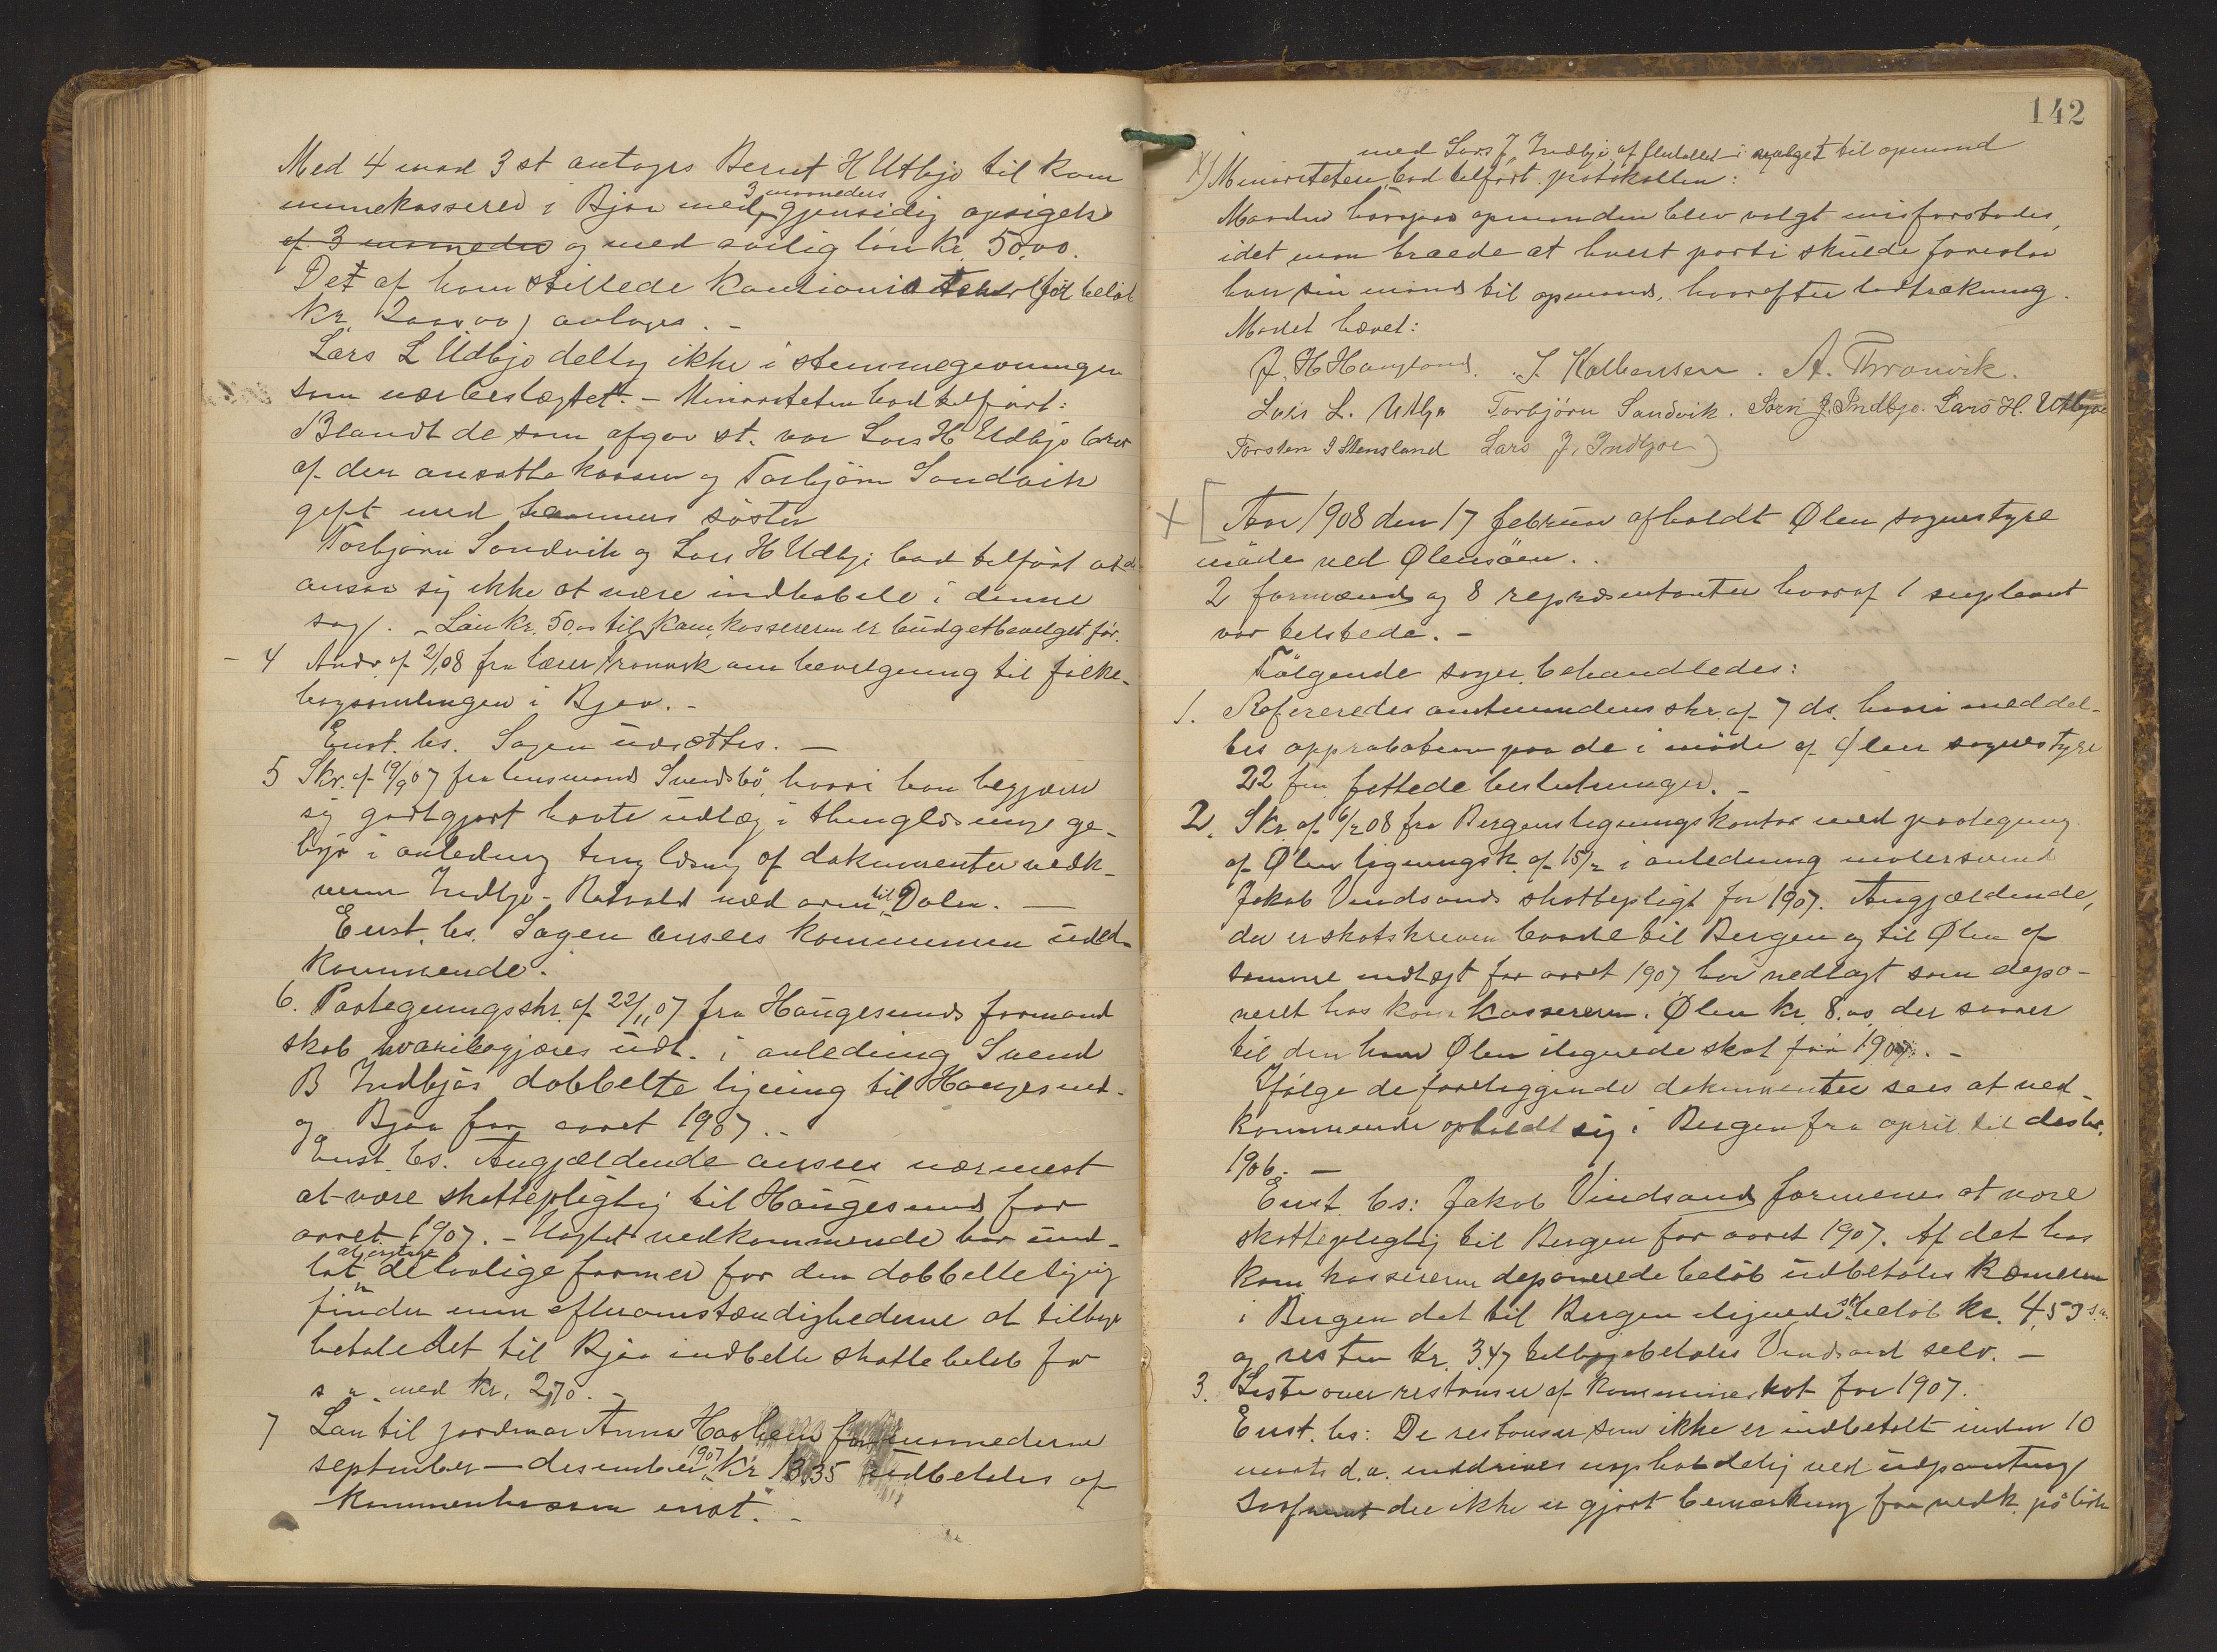 Med 4 mod 3 st antoges Bernt H Utbjo til kom
munekasserer i Bjoa med 3 maaneders gjensidig opsigelse
af 3 maaneder og med aarlig løn kr. 50,00.
Det af ham stillede kautionist (for beløb
kr. 2000,00) antoges. -
Lars L Udbjo deltog ikke i stemmegivningen
som nær beslægtet. - Minoriteten bad tilført:
Blandt de som afgav st. var Lars H Udbjo bror
af den ansatte kasserer og Torbjørn Sandvik
gift med hannes søster
Torbjørn Sandvik og Lars H Udbjo bad tilført at de
ansaa sig ikke at være indhabile i denne
sag. - Løn kr. 50,00 til kom.kassereren er budgetbevilget før.
- 4 Andr. af 2/1 08 fra lærer Tronvik om bevilgning til folke-
bogsamlingen i Bjoa. -
Enst. bs. Sagen udsættes. -
5 Skr. af 19/9 07 fra lensmand Svendsbø, hvori han begjærer
sig godtgjort havte udlæg i thinglæsnings ge-
byr i anledning tinglæsning af dokumenter vedk-
veien Indbjo - Ratvold med arm til Dalen. -
Enst. bs. Sagen ansees kommunen uved-
kommende.
6. Paategningsskr. af 22/11 07 fra Haugesunds formand
skab hvori begjæres udt. i anledning Svend
B Indbjos dobbelte ligning til Haugesund
og Bjoa for aaret 1907. -
Enst. bs. Angjældende ansees nærmest
at være skattepligtig til Haugesund for
aaret 1907. - Uagtet vedkommende har und-
lat at iagttage de lovlige former for den dobbelte ligning
finder man efter omstændighederne at tilbage
betale det til Bjoa indbetalte skattebeløb for
s a med kr. 2,70. -
7 Løn til jordmor Anna Haaheim for maanederne
september - desember 1907 kr 13,35 udbetales af
kommunekassen enst. -
142
med Lars J. Indbjo af flertallet i valget til opmand
x) Minoriteten bad tilført protokollen:
Maaden hvorpaa opmanden blev valgt misforstodes,
idet man troede at hvert parti skulde foreslaa
hver sin mand til opmand, hvorefter lodtrækning.
Mødet hævet:
J. H Haugland. J. Kolbensen. A. Thronvik.
Lars L. Utbjo Torbjørn Sandvik. Sørn J. Indbjo. Lars H. Utbjoe
Torsten I Stensland Lars J. Indbjoe
x [ Aar 1908 den 17 februar afholdt Ølen sognestyre
møde ved Ølensøen.
2 formænd og 8 repræsentanter hvoraf 1 supleant
var tilstede. -
Følgende sager behandledes:
1. Refereredes amtmandens skr. af 7 ds. hvori meddel-
tes approbation paa de i møde af Ølen sognestyre
22 fm fattede beslutninger. -
2. Skr. af 6/2 08 fra Bergens ligningskontor med paategning
af Ølen ligningsk. af 15/2 i anledning
Jakob Vindsands skattepligt for 1907. Angjældende,
der er skatskreven baade til Bergen og til Ølen af
samme indtægt for aaret 1907 har nedlagt som depo-
neret hos kom.kassereren i Ølen kr. 8,00 der svarer
til den ham Ølen ilignede skat for 1907. -
Ifølge de foreliggende dokumenter sees at ved-
kommende opholdt sig i Bergen fra april til desbr.
1906. -
Enst. bs: Jakob Vindsand formenes at være
skattepligtig til Bergen for aaret 1907. Af det hos
kom.kassereren deponerede beløb udbetales kæmneren
i Bergen det til Bergen ilignede sk.beløb kr. 4,53 s.a.
og resten kr. 3,47 tilbagebetales Vindsand selv. -
3. Liste over restanser af kommuneskat for 1907.
Enst. bs: De restanser som ikke er indbetalt inden 10
marts d.a. inddrives uopholdelig ved udpantning
saafremt der ikke er gjort bemærkning fra vedk. på listen